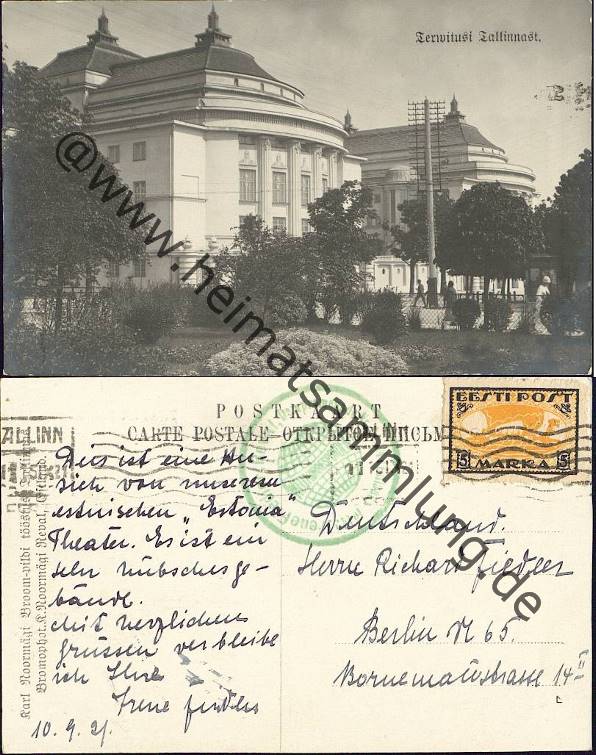 Terwitusi Tallinnast.
@www.heimatsammlung.de
POSTKAART
CARTE POSTALE–ОТКРЫТОЕ ПИСЬМ
EESTI POST
15 MARKA 15
TALLINN
Dies ist eine An-
sicht von unserem
estnischen "Estonia"
Theater. Es ist ein
sehr hübsches ge-
bäude.
Mit herzlichen
Grüssen verbleibe
ich Ihre
Irene
10.9.21.
Deutschland.
Herrn Richard Fiedler
Berlin N 65.
Bornemannstrasse 14 II
Karl Noormägi Broom-pildi tööstus
Bromophot. K. Noormägi Reval, (Estland).